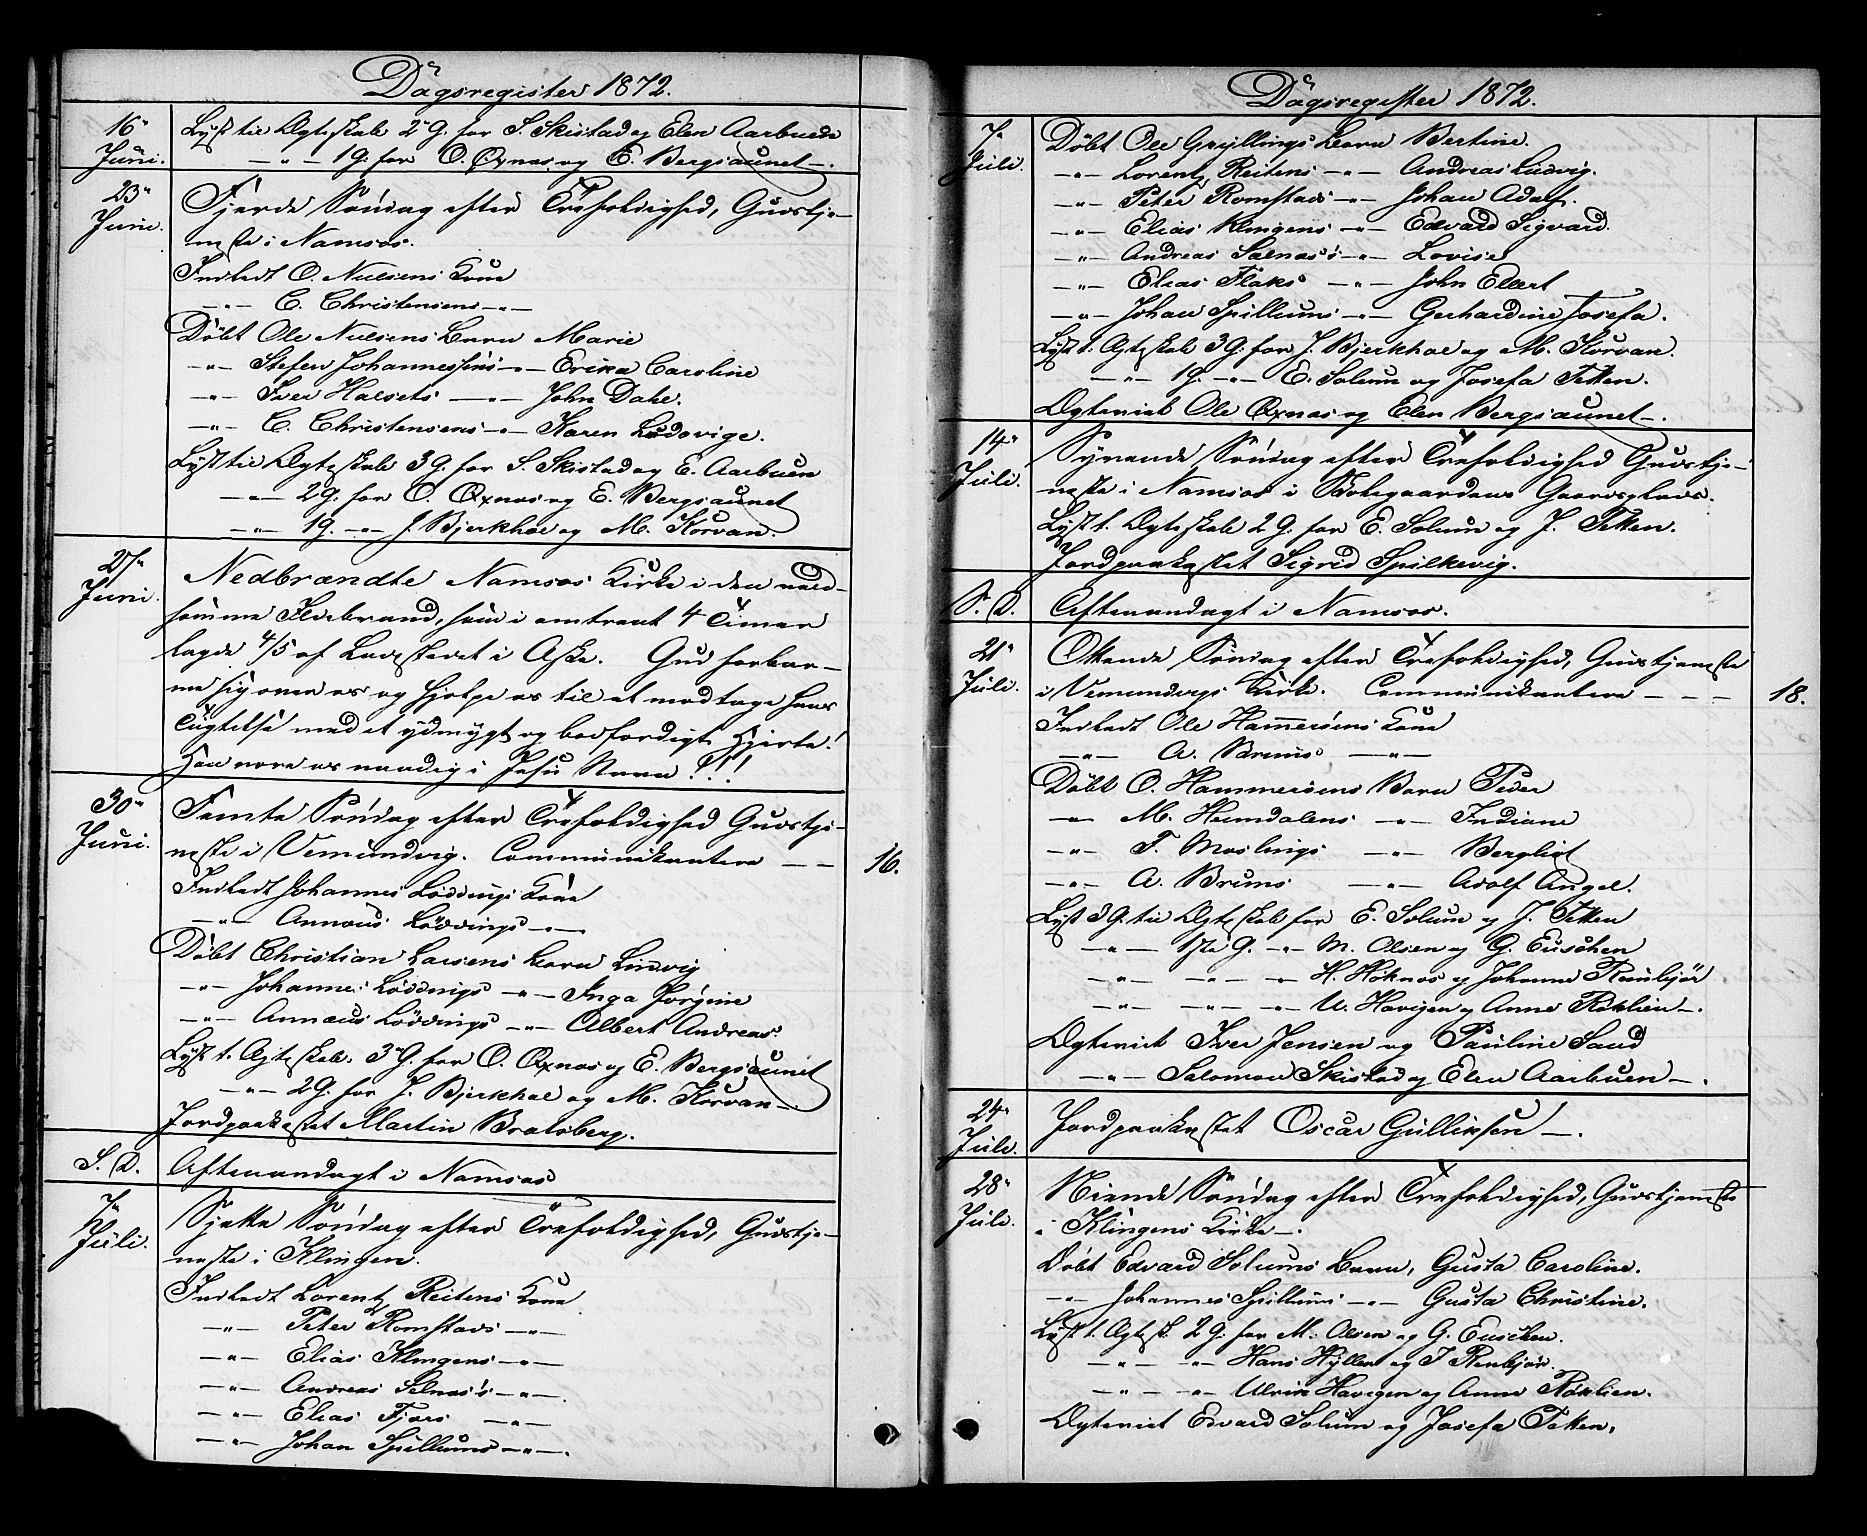 Dagsregister 1872.
16de Juni. Lyst til Ægteskab 2 G. for S. Skistad og Elen Aarbuen
—"— 1 G. for O. Oxnæs og E. Bergsaunet —.
23de Juni. Fjerde Søndag efter Trefoldighed, Gudstje-
neste i Namsos.
Indledt O. Nielsens Kone
—"— C. Christensens —"—
Døbt Ole Nielsens Barn Marie
—"— Stefen Johannessens —"— Erika Caroline
—"— Iver Halsets —"— John Dahl.
—"— C. Christensens —"— Karen Ludovige.
Lyst til Ægteskab 3 G. for S. Skistad og E. Aarbuen
—"— 2 G. for O. Oxnæs og E. Bergsaunet
—"— 1 G. —"— J. Bjerkhoe og M. Korvan.
27de Juni. Nedbrændte Namsos Kirke i den vold-
somme Ildebrand, som i omtrent 4 Timer
lagde 4/5 af Ladestedet i Aske. Gud forbar-
me sig over os og hjelpe os til at modtage hans
Tugtelse med et ydmygt og bodfærdigt Hjerte!
Han være os naadig i Jesu Navn!!!
30de Juni. Femte Søndag efter Trefoldighed Gudstje-
neste i Vemundvig. Communikantere — — 16.
Indledt Johannes Løddings Kone
—"— Annæus Løddings —"—
Døbt Christian Larsens Barn Lindvig
—"— Johannes Løddings —"— Inga Jørgine
—"— Annæus Løddings —"— Albert Andreas.
Lyst t. Ægteskab. 3 G. for O. Oxnæs og E. Bergsaunet
—"— 2 G. for J. Bjerkhoe og M. Korvan —.
Jordpaakastet Martin Bratsberg.
S. D. Aftenandagt i Namsos
7de Juli. Sjette Søndag efter Trefoldighed, Gudstje-
neste i Klingen.
Indledt Lorentz Reitens Kone
—"— Peter Romstads —"—
—"— Elias Klingens —"—
—"— Andreas Selnæs's —"—
—"— Elias —"—
—"— Johan Spillums —"—.
Dagsregister 1872.
7de Juli. Døbt Ole Gryllings Barn Bertine.
—"— Lorentz Reitens —"— Andreas Ludvig.
—"— Peter Romstads —"— Johan Adolf.
—"— Elias Klingens —"— Edvard Sigvard.
—"— Andreas Selnæs's —"— Lovise
—"— Elias Flaks —"— John Edert
—"— Johan Spillums —"— Gerhardine Josefa.
Lyst t. Ægteskab 3 G. for J. Bjerkhoe og M. Korvan.
—"— 1 G. —"— E. Solum og Josefa Tetken.
Ægteviet Ole Oxnæs og Elen Bergsaunet —.
14de Juli. Syvende Søndag efter Trefoldighed Gudstje-
neste i Namsos i Gaardsplads.
Lyst t. Ægteskab 2 G. for E. Solum og J. Tetken.
Jordpaakastet Sigrid Spilkevig.
S. D. Aftenandagt i Namsos.
21de Juli. Ottende Søndag efter Trefoldighed, Gudstjeneste
i Vemundvigs Kirke. Communikantere — — — 18.
Indledt Ole Hammersens Kone
—"— A. Bruns —"—
Døbt O. Hammersens Barn Peder
—"— M. Heimdalens —"— Indiane
—"— F. Moslings —"— Bergliot
—"— A. Bruns —"— Adolf Angel.
Lyst 3 G. til Ægteskab for E. Solum og J. Tetken
—"— 1ste G. —"— M. Olsen og G. Euschen
—"— —"— —"— H. Høknes og Johanna Reinbjør
—"— —"— —"— U. Havigen og Anne Røklien —.
Ægteviet Iver Jensen og Pauline Sand
—"— Salomon Skistad og Elen Aarbuen —.
24de Juli. Jordpaakastet Oscar Gulliksen —.
28de Juli. Niende Søndag efter Trefoldighed, Gudstjeneste
i Klingens Kirke —.
Døbt Edvard Solums Barn, Gusta Caroline.
—"— Johannes Spillums —"— Gusta Christine.
Lyst t. Ægtesk. 2 G. for M. Olsen og G. Euschen.
—"— —"— Hans Hyllen og J Renbjør.
—"— —"— Ulrik Havigen og Anne Røklien.
Ægteviet Edvard Solum og Josefa Tetken.